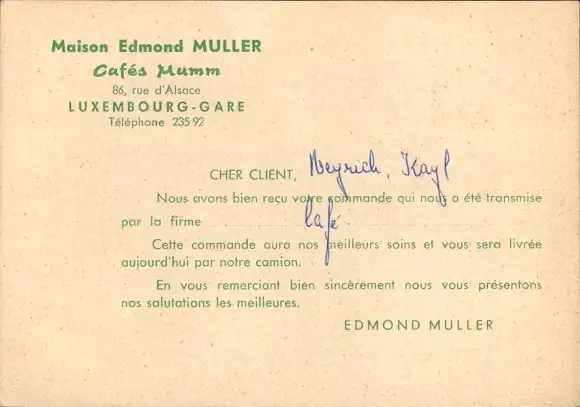 Maison Edmond MULLER
Cafés Mumm
86, rue d'Alsace
LUXEMBOURG-GARE
Téléphone 235 92
CHER CLIENT, Meyrich, Kayl
Nous avons bien reçu votre commande qui nous a été transmise
par la firme Café.
Cette commande aura nos meilleurs soins et vous sera livrée
aujourd'hui par notre camion.
En vous remerciant bien sincèrement nous vous présentons
nos salutations les meilleures.
EDMOND MULLER